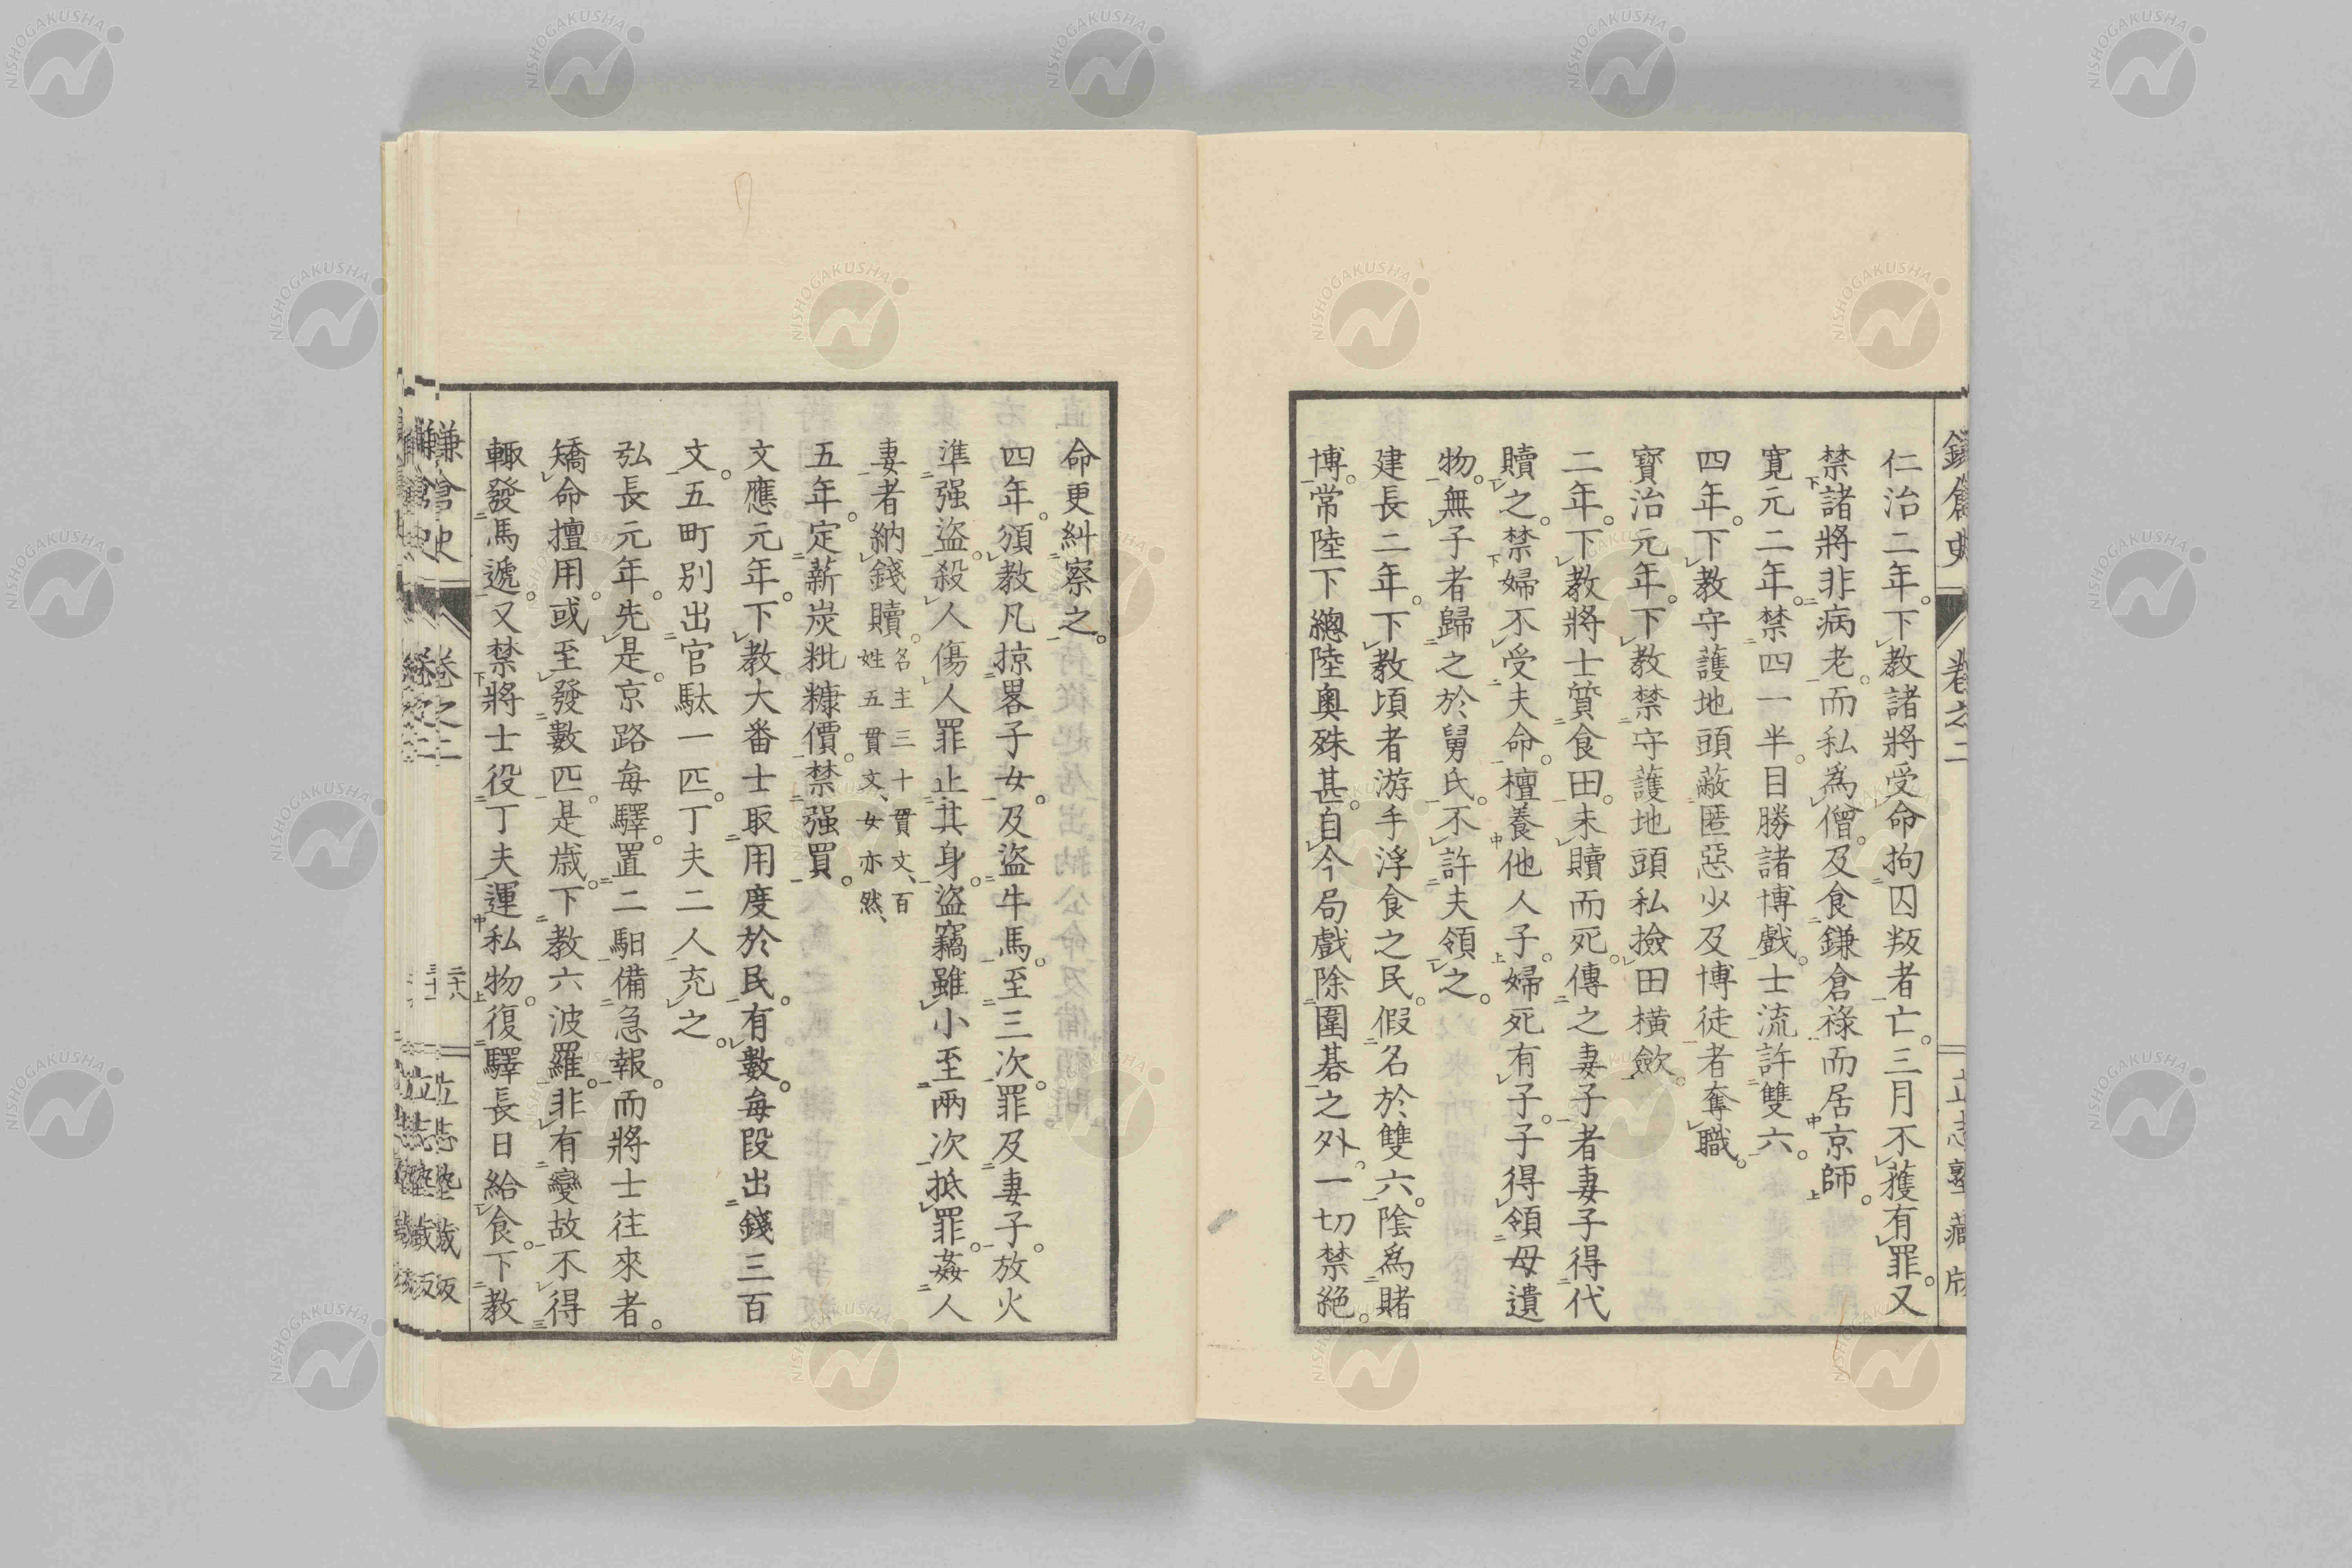 仁治二年。下教諸將受命拘囚叛者亡。三月不獲有罪。又
禁諸將非病老。而私爲僧。及食鎌倉祿而居京師。
寛元二年。禁四一半。目勝諸博戲。士流許雙六。
四年。下教守護地頭蔽匿惡少及博徒者奪職。
寶治元年。下教禁守護地頭私撿田橫歛。
二年。下教將士質食田。未贖而死。傳之妻子者妻子得代
贖之。禁婦不受夫命。檀養他人子。婦死有子。子得領母遺
物。無子者歸之於舅氏。不許夫領之。
建長二年。下教頃者游手浮食之民。假名於雙六。陰爲賭
博。常陸下總陸奧殊甚。自今局戲除圍碁之外。一切禁絕。
命更糾察之。
四年。頒教凡掠畧子女。及盜牛馬。至三次。罪及妻子。放火
準强盜。殺人傷人罪止其身。盜竊雖小至兩次抵罪。姦人
妻者納錢贖。名主三十貫文、百姓五貫文、女亦然、
五年。定薪炭粃糠價。禁强買。
文應元年。下教大番士取用度於民。有數。每段出錢三百
文。五町別出官駄一匹。丁夫二人充之。
弘長元年。先是。京路每驛。置二馹備急報。而將士往來者。
矯命擅用。或至發數匹。是歲。下教六波羅。非有變故不得
輙發馬遞。又禁將士役丁夫運私物。復驛長日給食。下教
卷之二
立志塾藏版
鎌倉史
卷之二
二十八